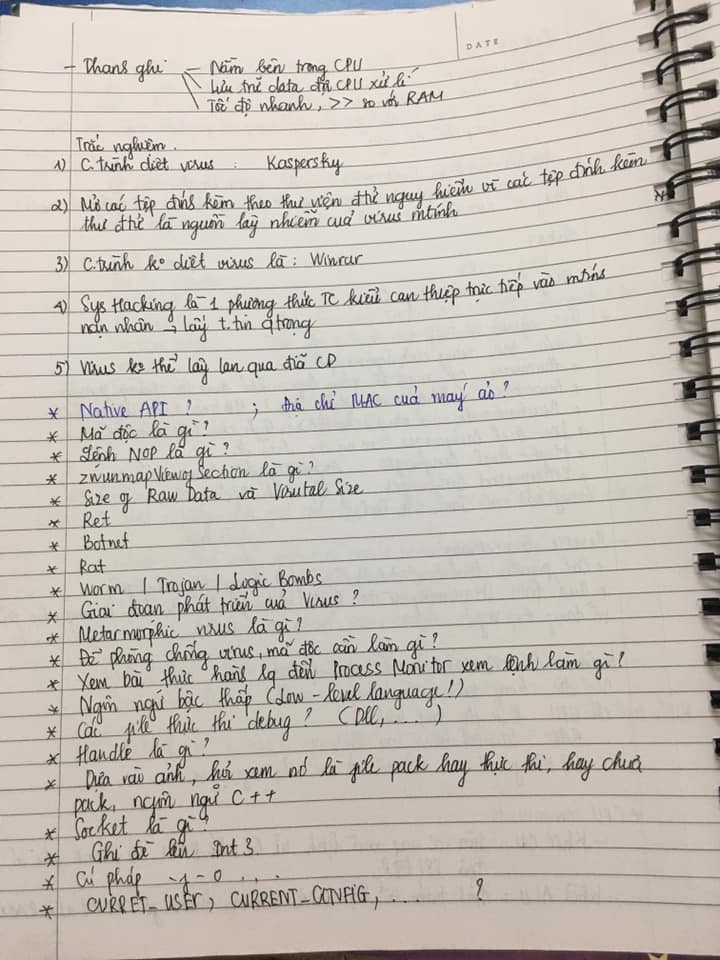 DATE
- Thanh ghi - Nằm bên trong CPU
Lưu trữ data để CPU xử lí
Tốc độ nhanh, >> so với RAM
Trắc nghiệm.
1) C.trình diệt virus : Kaspersky
2) Mở các tệp đính kèm theo thư viện đtử nguy hiểm vì các tệp đính kèm
thư đtử là nguồn lây nhiễm của virus mtính
3) C.trình ko diệt virus là : Winrar
4) Sys Hacking là 1 phương thức TC kiểu can thiệp trực tiếp vào mtính
nạn nhân → lấy t.tin qtrọng
5) Virus ko thể lây lan qua đĩa CD
* Native API ? ; Địa chỉ MAC của máy ảo ?
* Mã độc là gì ?
* Lệnh NOP là gì ?
* ZwunmapViewofSection là gì ?
* Size of Raw Data và Virutal Size
* Ret
* Botnet
* Rat
* Worm / Trojan / Logic Bombs
* Giai đoạn phát triển của Virus ?
* Metarmorphic virus là gì ?
* Để phòng chống virus, mã độc cần làm gì ?
* Xem bài thực hành lq đến Process Monitor xem lệnh làm gì ?
* Ngôn ngữ bậc thấp (Low-level language!)
* Các file thực thi debug ? (Dll, ....)
* Handle là gì ?
* Dựa vào ảnh, hỏi xem nó là file pack hay thực thi, hay chưa
pack, ngôn ngữ C++
* Socket là gì ?
* Ghi đè lên Int 3.
* Cú pháp -y -o ...
* CURRET_USER, CURRENT_CONFIG, .... ?